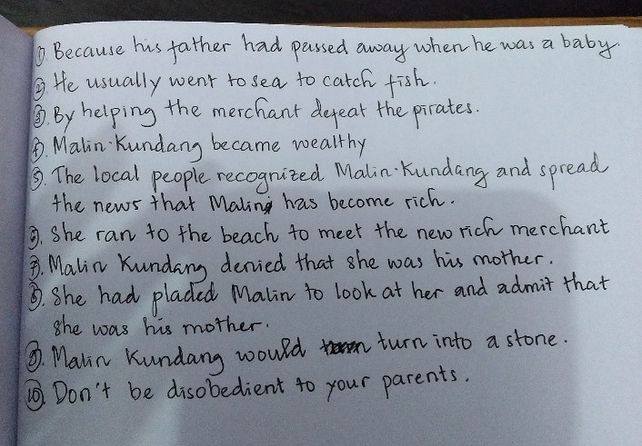 ① Because his father had passed away when he was a baby.
② He usually went to sea to catch fish.
③. By helping the merchant defeat the pirates.
④. Malin Kundang became wealthy
⑤. The local people recognized Malin Kundang and spread
the news that Malin has become rich.
⑥. She ran to the beach to meet the new rich merchant
⑦. Malin Kundang denied that she was his mother.
⑧. She had pladed Malin to look at her and admit that
she was his mother.
⑨. Malin Kundang would turn into a stone.
⑩ Don't be disobedient to your parents.